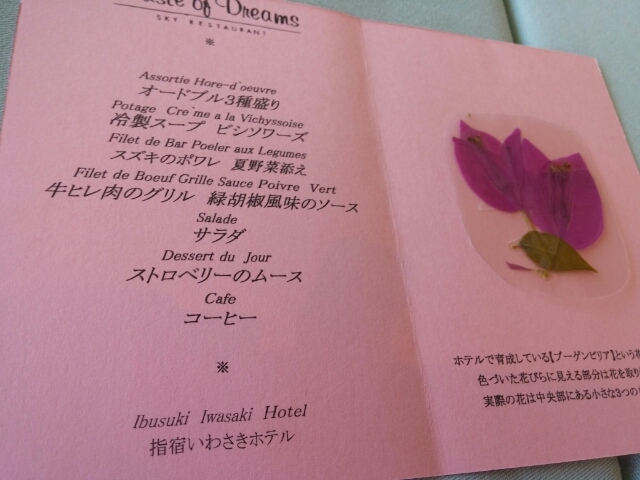 of Dreams
SKY RESTAURANT
※
Assortie Hore-d'oeuvre
オードブル3種盛り
Potage Cre`me a la Vichyssoise
冷製スープ ビシソワーズ
Filet de Bar Poeler aux Legumes
スズキのポワレ 夏野菜添え
Filet de Boeuf Grille Sauce Poivre Vert
牛ヒレ肉のグリル 緑胡椒風味のソース
Salade
サラダ
Dessert du Jour
ストロベリーのムース
Cafe
コーヒー
※
Ibusuki Iwasaki Hotel
指宿いわさきホテル
ホテルで育成している【ブーゲンビリア】という花
色づいた花びらに見える部分は花を取り
実際の花は中央部にある小さな3つの